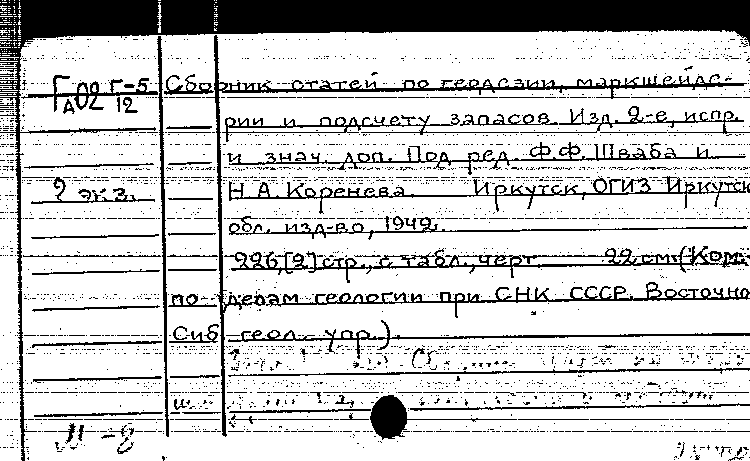 ГД02 Г-5/12 Сборник статей по геодезии, маркшейде-
рии и подсчету запасов. Изд. 2-е, испр.
и знач. доп. Под ред. Ф.Ф. Шваба и
2 экз. Н.А. Коренева. Иркутск, ОГИЗ Иркутск
обл. изд-во, 1942.
226,[2] стр., с табл., черт. 22 см. (Ком.
по делам геологии при СНК СССР. Восточно
Сиб. геол. упр.)
М-8